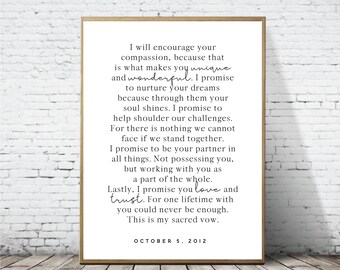 I will encourage your
compassion, because that
is what makes you unique
and wonderful. I promise
to nurture your dreams
because through them your
soul shines. I promise to
help shoulder our challenges.
For there is nothing we cannot
face if we stand together.
I promise to be your partner in
all things. Not possessing you,
but working with you as
a part of the whole.
Lastly, I promise you love and
trust. For one lifetime with
you could never be enough.
This is my sacred vow.
OCTOBER 5, 2012